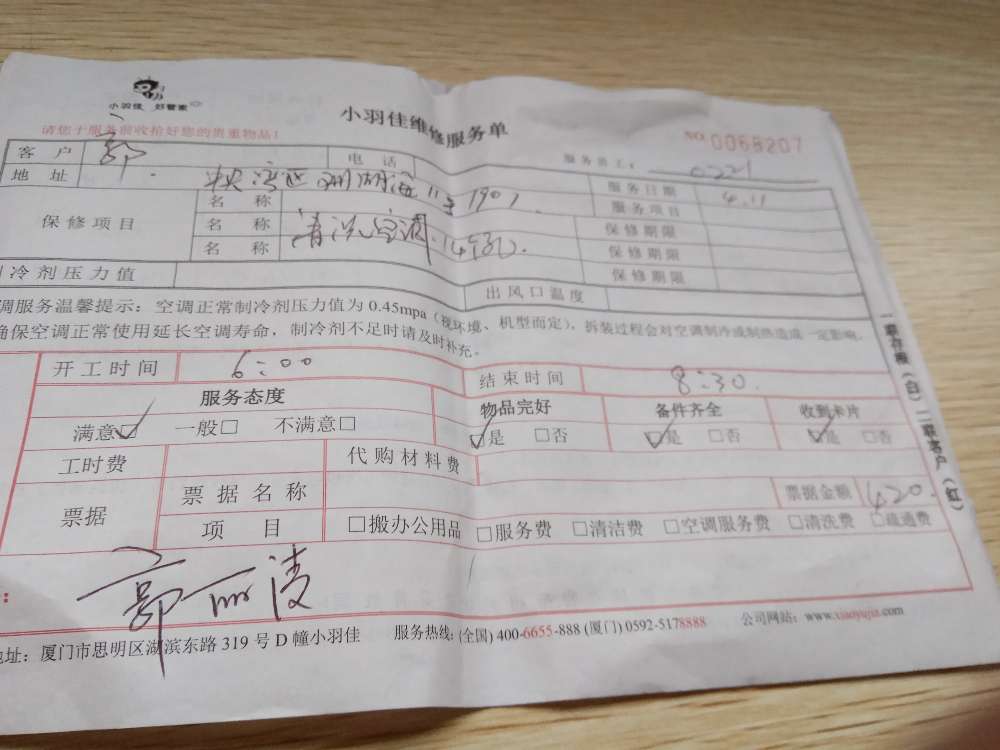 小羽佳 好管家
小羽佳维修服务单
请您于服务前收拾好您的贵重物品!
NO. 0068207
客户 郭 电话 服务员工: 0221
地址 央湾区 11 1901 服务日期 4.11
保修项目 名称 服务项目
名称 清洗空调 保修期限
名称 保修期限
保修期限
冷剂压力值 出风口温度
调服务温馨提示:空调正常制冷剂压力值为0.45mpa(视环境、机型而定),拆装过程会对空调制冷或制热造成一定影响。
确保空调正常使用延长空调寿命,制冷剂不足时请及时补充。
开工时间 6:00 结束时间 8:30.
服务态度 物品完好 备件齐全 收到卡片
满意☑ 一般□ 不满意□ ☑是 □否 ☑是 □否 ☑是 □否
工时费 代购材料费
票据 票据名称 票据金额 1420.
项目 □搬办公用品 □服务费 □清洁费 □空调服务费 □清洗费 □疏通费
郭丽凌
地址:厦门市思明区湖滨东路319号D幢小羽佳 服务热线:(全国)400-6655-888 (厦门)0592-5178888 公司网站:www.xiaoyujia.com
一联存根(白)二联客户(红)